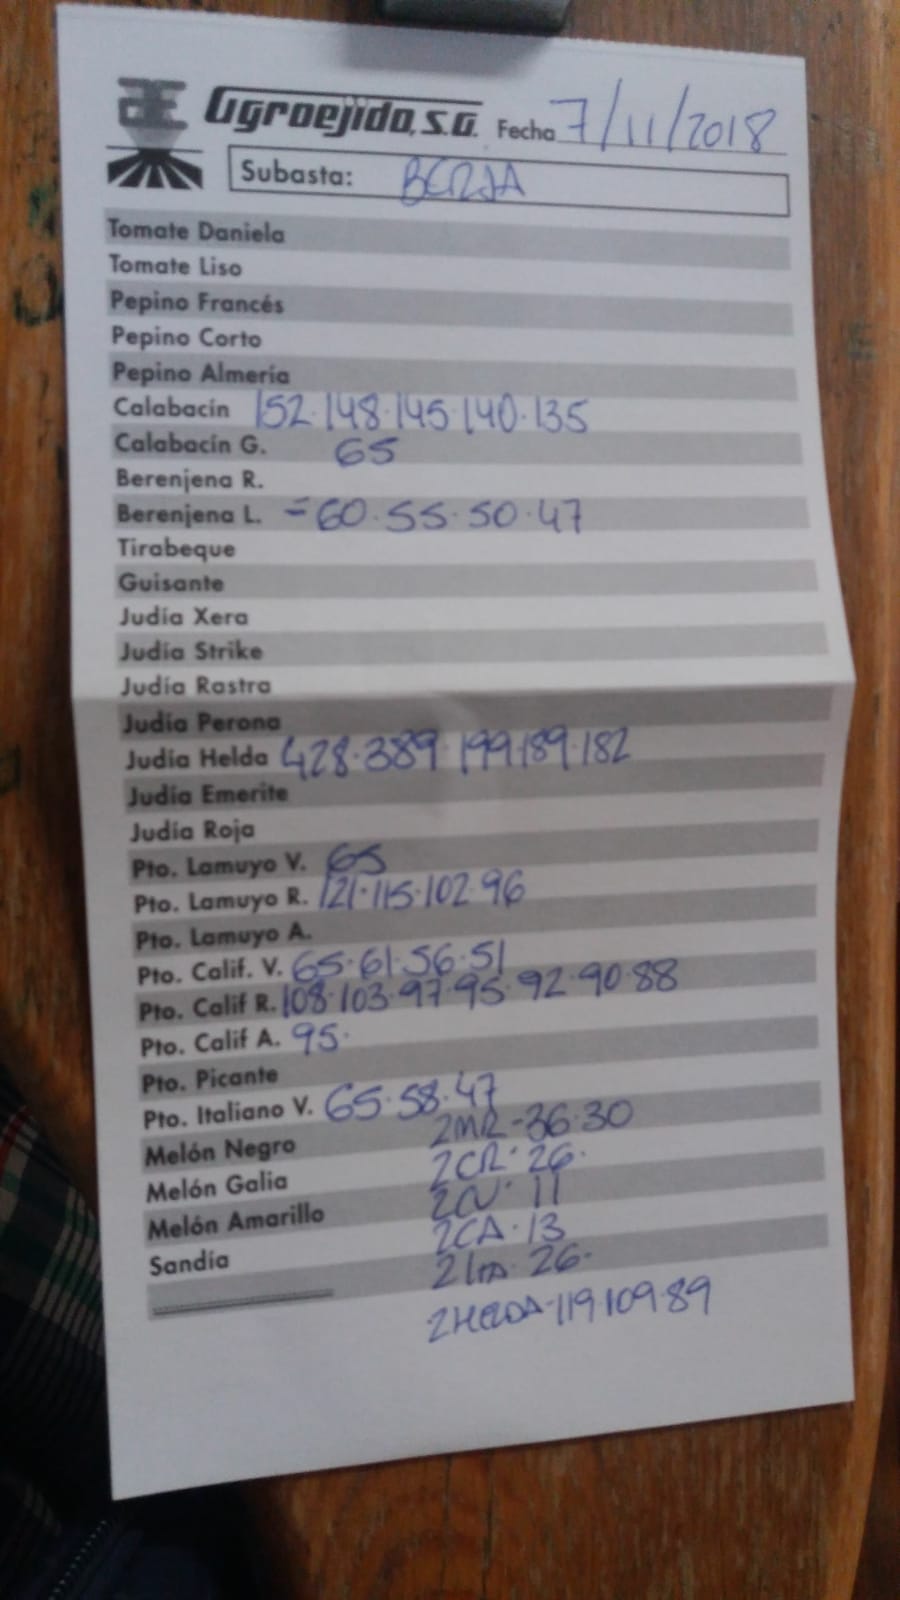 Agroejido, S.A. Fecha 7/11/2018
Subasta: BERJA
Tomate Daniela
Tomate Liso
Pepino Francés
Pepino Corto
Pepino Almería
Calabacín 152·148·145·140·135
Calabacín G. 65
Berenjena R.
Berenjena L. =60·55·50·47
Tirabeque
Guisante
Judía Xera
Judía Strike
Judía Rastra
Judía Perona
Judía Helda 428·389·199·189·182
Judía Emerite
Judía Roja
Pto. Lamuyo V. 65
Pto. Lamuyo R. 121·115·102·96
Pto. Lamuyo A.
Pto. Calif. V. 65·61·56·51
Pto. Calif R. 108·103·97·95·92·90·88
Pto. Calif A. 95·
Pto. Picante
Pto. Italiano V. 65·58·47
Melón Negro 2MR-36·30
Melón Galia 2CR·26·
Melón Amarillo 2CV·11
2CA·13
Sandía 2ITA·26·
2HELDA·119·109·89